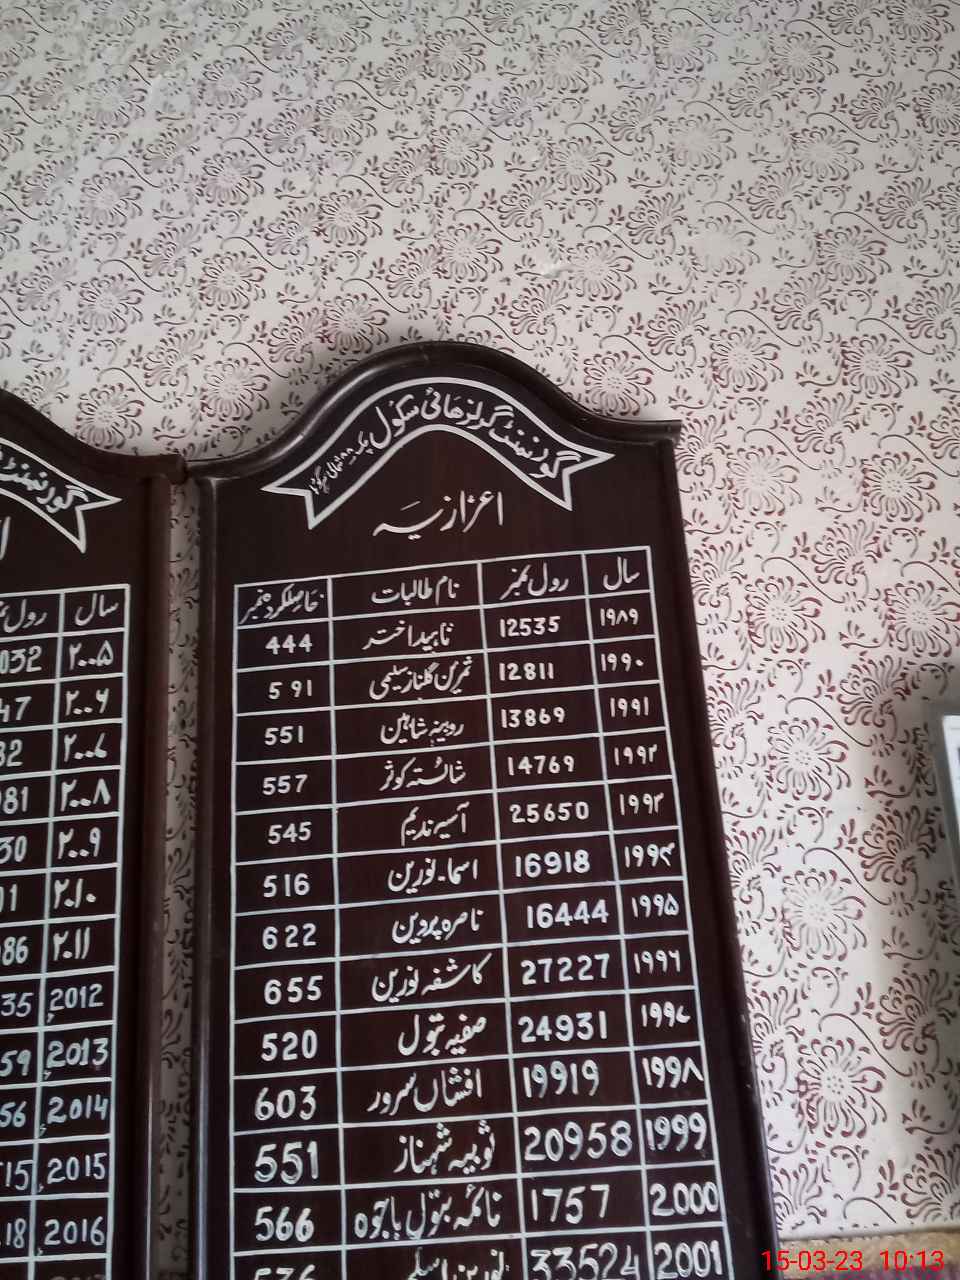 گورنمنٹ گرلز ھائی سکول چک
اعزازیہ
سال رول نمبر نام طالبات حاصلکردہ نمبر
۱۹۸۹ 12535 ناہید اختر 444
۱۹۹۰ 12811 ثمرین گلناز سلیمی 591
۱۹۹۱ 13869 روبینہ شاہین 551
۱۹۹۲ 14769 شائستہ کوثر 557
۱۹۹۳ 25650 آسیہ ندیم 545
۱۹۹۴ 16918 اسماء نورین 516
۱۹۹۵ 16444 ناصرہ پروین 622
۱۹۹۶ 27227 کاشفہ نورین 655
۱۹۹۷ 24931 صفیہ بتول 520
۱۹۹۸ 19919 افشاں سرور 603
1999 20958 ثوبیہ شہناز 551
2000 1757 نائمہ بتول باجوہ 566
2001 33524 536
گورنمنٹ
سال رول
۲۰۰۵ 032
۲۰۰۶ 47
۲۰۰۷ 32
۲۰۰۸ 981
۲۰۰۹ 30
۲۰۱۰ 01
۲۰۱۱ 86
2012ء 35
2013ء 59
2014ء 56
2015ء 15
2016ء 18
15-03-23 10:13